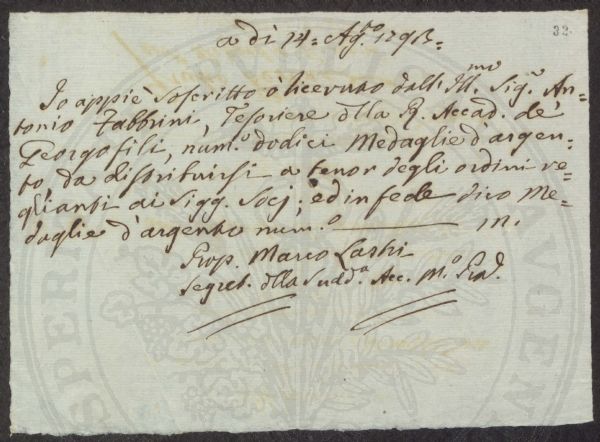 32.
a dì 14 = Ag.to 1793 =
Io appiè Soscritto ò ricevuto dall'Ill.mo Sig.r An-
tonio Fabbrini, Tesoriere dlla R. Accad. de'
Georgofili, num.o dodici Medaglie d'argen-
to, da distribuirsi a tenor degli ordini ve-
glianti ai Sigg. Socj; ed in fede dico Me-
daglie d'argento num.o ——— 12.
Prop. Marco Lastri
Segret. dlla Sudd.a Acc. M.o
PVBLICO
SPERI
AVGENT